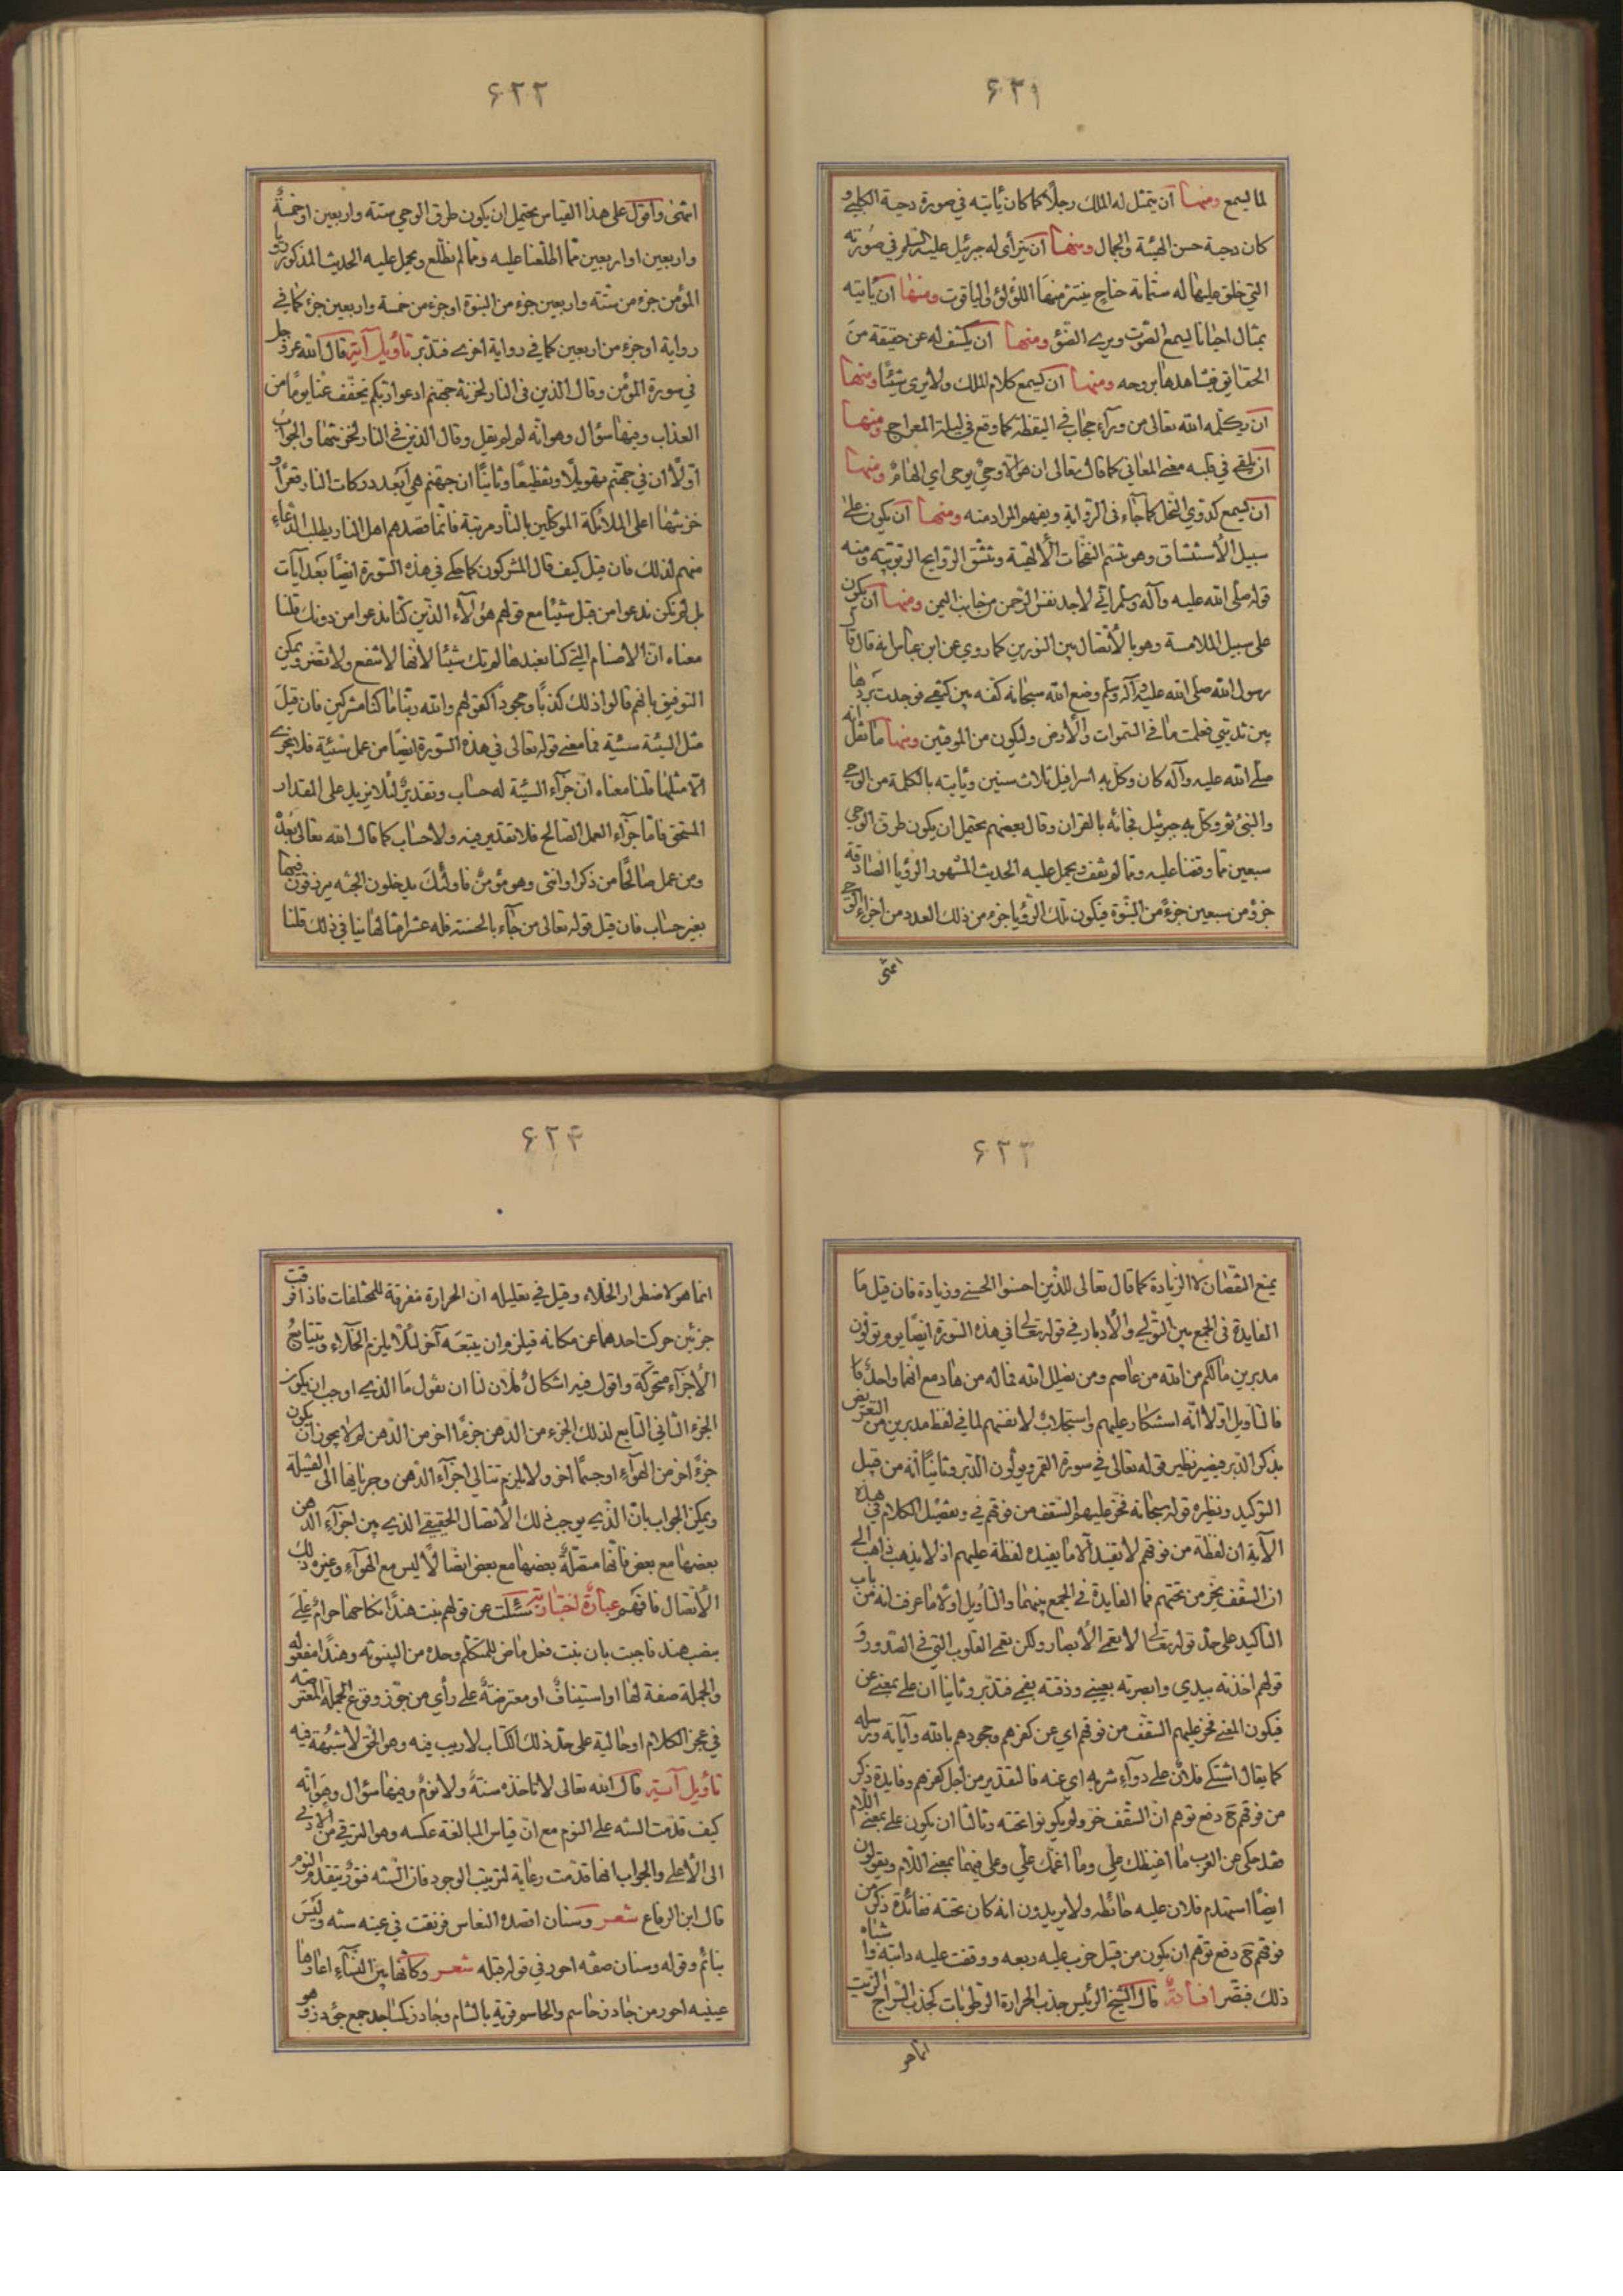 ۶۲۱
لما يسمع ومنها ان يتمثل له الملك رجلا كما كان يأتيه في صورة دحية الكلبي و
كان دحية حسن الهيئة والجمال ومنها ان يترأى له جبرئيل عليه السلم في صورته
التي خلق عليها له ستمائة جناح ينتثر منها اللؤلؤ والياقوت ومنها ان يأتيه
بمثال احيانا يسمع الصوت ويرى الضوء ومنها ان يكشف له عن حقيقة من
الحقائق فيشاهدها بروحه ومنها ان يسمع كلام الملك ولا يرى شيئا ومنها
ان يكلمه الله تعالى من ورآء حجاب في اليقظة كما وقع في ليلة المعراج ومنها
ان يلقى في قلبه معنى المعاني كما قال تعالى ان هو الا وحي يوحى اي الهام ومنها
ان يسمع كدوي النحل كما جآء في الرواية ويفهم المراد منه ومنها ان يكون على
سبيل الاستنشاق وهو تنسم النفحات الالهية وتنشق الروايح الربوبية ومنه
قوله صلى الله عليه وآله وسلم اني لاجد نفس الرحمن من جانب اليمن ومنها ان يكون
على سبيل الملامسة وهو بالاتصال بين النورين كما روي عن ابن عباس انه قال قال
رسول الله صلى الله عليه وآله وسلم وضع الله سبحانه كفه بين كتفي فوجدت بردها
بين ثديي فعلمت ما في السموات والارض وليكون من الموقنين ومنها ما نقل انه
صلى الله عليه وآله كان وكل به اسرافيل ثلاث سنين ويأتيه بالكلمة من الوحي
والشئ ثم وكل به جبرئيل فجائه بالقران وقال بعضهم يحتمل ان يكون طرق الوحي
سبعين مما وقفنا عليه ومما لم نقف ويحمل عليه الحديث المشهور الرؤيا الصادقة
جزؤ من سبعين جزء من النبوة فيكون تلك الرؤيا جزء من ذلك العدد من اجزاء الوحي
انتهى
۶۲۲
انتهى واقول على هذا القياس يحتمل ان يكون طرق الوحي ستة واربعين او خمسة
واربعين او اربعين مما اطلعنا عليه ومما لم نطلع ويحمل عليه الحديث المذكور رؤيا
المؤمن جزء من ستة واربعين جزء من النبوة او جزء من خمسة واربعين جزء كما في
رواية او جزء من اربعين كما في رواية اخرى فتدبر تأويل آية قال الله عز وجل
في سورة المؤمن وقال الذين في النار لخزنة جهنم ادعوا ربكم يخفف عنا يوما من
العذاب وفيها سؤال وهو انه لم لم يقل وقال الذين في النار لخزنتها والجواب
اولا ان في جهنم تهويلا وتفظيعا وثانيا ان جهنم هي ابعد دركات النار قعرا و
خزنتها اعلى الملائكة الموكلين بالنار مرتبة فانما قصدهم اهل النار بطلب الدعاء
منهم لذلك فان قيل كيف قال المشركون كما حكي في هذه السورة ايضا بعد آيات
بل لم نكن ندعوا من قبل شيئا مع قولهم هؤلآء الذين كنا ندعوا من دونك قلنا
معناه ان الاصنام التي كنا نعبدها لم تك شيئا لانها لا تنفع ولا تضر ويمكن
التوفيق بانهم قالوا ذلك كذبا وجحودا كقولهم والله ربنا ما كنا مشركين فان قيل
مثل السيئة سيئة فما معنى قوله تعالى في هذه السورة ايضا من عمل سيئة فلا يجزى
الا مثلها قلنا معناه ان جزآء السيئة له حساب وتقدير لئلا يزيد على المقدار
المستحق فاما جزآء العمل الصالح فلا تقدير فيه ولا حساب كما قال الله تعالى بعد
ومن عمل صالحا من ذكر او انثى وهو مؤمن فاولئك يدخلون الجنة يرزقون فيها
بغير حساب فان قيل قوله تعالى من جآء بالحسنة فله عشر امثالها ينافي ذلك قلنا
۶۲۳
يمنع النقصان لا الزيادة كما قال تعالى للذين احسنوا الحسنى وزيادة فان قيل ما
الفايدة في الجمع بين التولي والادبار في قوله تعالى في هذه السورة ايضا يوم تولون
مدبرين ما لكم من الله من عاصم ومن يضلل الله فما له من هاد مع انهما واحد قلنا
فالتأويل اولا انه استنكار عليهم واستجلاب لانفتهم لما في لفظ مدبرين من التعريض
بذكر الدبر فيصير نظير قوله تعالى في سورة القمر ويولون الدبر وثانيا انه من قبيل
التوكيد ونظيره قوله سبحانه فخر عليهم السقف من فوقهم وتفصيل الكلام في هذه
الآية ان لفظة من فوقهم لا تفيد الا ما يفيده لفظة عليهم اذ لا يذهب ذاهب الى
ان السقف يخر من تحتهم فما الفايدة في الجمع بينهما والتأويل اولا ما عرف انه من باب
التأكيد على حد قوله تعالى لا تعمى الابصار ولكن تعمى القلوب التي في الصدور و
قولهم اخذته بيدي وابصرته بعيني وذقته بفمي فتدبر وثانيا ان على بمعنى عن
فيكون المعنى فخر عليهم السقف من فوقهم اي عن كفرهم وجحودهم بالله وآياته ورسله
كما يقال اشتكى فلان على دوآء شربه اي عنه فالتقدير من اجل كفرهم وفايدة ذكر
من فوقهم ح دفع توهم ان السقف خر ولم يكونوا تحته وثالثا ان يكون على بمعنى اللام
فقد حكي عن العرب ما اغيظك علي وما اغمك علي وعلى فيهما بمعنى اللام ويقولون
ايضا استهدم فلان عليه حائطه ولا يريدون انه كان تحته ففائدة ذكر من
فوقهم ح دفع توهم ان يكون من قبيل خرب عليه ربعه ووقفت عليه دابته واشباه
ذلك فتبصر افادة قال الشيخ الرئيس جذب الحرارة الرطوبات كجذب السراج الزيت
انما هو
۶۲۴
انما هو لاضطرار الخلاء وقيل في تعليله ان الحرارة مفرقة للمختلفات فاذا فرقت
جزئين حركت احدهما عن مكانه فيلزم ان يتبعه آخر لئلا يلزم الخلاء ويتتابع
الاجزآء متحركة واقول فيه اشكال لان لنا ان نقول ما الذي اوجب ان يكون
الجزء الثاني التابع لذلك الجزء من الدهن جزءا اخر من الدهن لم لا يجوز ان يكون
جزء اخر من الهوآء او جسما اخر ولا يلزم تتالي اجزآء الدهن وجريانها الى الفتيلة
ويمكن الجواب بان الذي يوجب ذلك الاتصال الحقيقي الذي بين اجزآء الدهن
بعضها مع بعض فانها متصلة بعضها مع بعض اتصالا ليس مع الهوآء وغيره ذلك
الاتصال فافهم عبارة اختبارية سئلت عن قولهم بنت هندا نكاحها حرام علي
بنصب هند فاجبت بان بنت فعل ماض للمتكلم وحده من البينونة وهندا مفعوله
والجملة صفة لها او استيناف او معترضة على رأي من جوز وقوع الجملة المعترضة
في عجز الكلام او حالية على حد ذلك الكتاب لا ريب فيه وهو الحق لا شبهة فيه
تأويل آية قال الله تعالى لا تأخذه سنة ولا نوم وفيها سؤال وهو انه
كيف قدمت السنة على النوم مع ان قياس المبالغة عكسه وهو الترقي من الادنى
الى الاعلى والجواب انها قدمت رعاية لترتيب الوجود فان السنة فتور يتقدم النوم
قال ابن الرقاع شعر وسنان اقصده النعاس فرنقت في عينه سنة وليس
بنائم وقوله وسنان صفة احور في قوله قبله شعر وكانها بين النسآء اعارها
عينيه احور من جاذر جاسم والجاسم قرية بالشام وجاذر كمساجد جمع جؤذر وهو